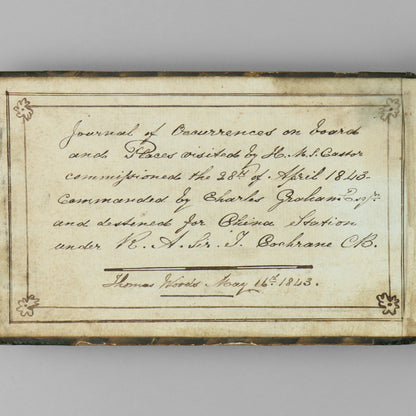 Journal of Occurrences on board
and Places visited by H.M.S. Castor
commissioned the 28th of April 1843
commanded by Charles Graham Esqr.
and destined for China Station
under R. A. Sir T. Cochrane CB.
Thomas Woods May 16th 1843.